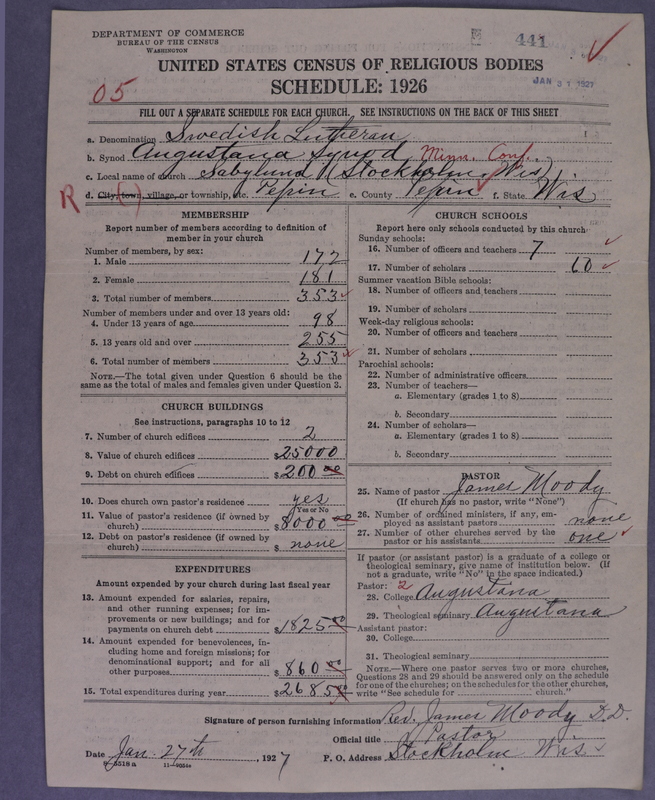 DEPARTMENT OF COMMERCE
BUREAU OF THE CENSUS
WASHINGTON
441
JAN 31 1927
UNITED STATES CENSUS OF RELIGIOUS BODIES
SCHEDULE: 1926
05
FILL OUT A SEPARATE SCHEDULE FOR EACH CHURCH. SEE INSTRUCTIONS ON THE BACK OF THIS SHEET
a. Denomination Swedish Lutheran
b. Synod Augustana Synod Minn. Conf.
c. Local name of church Sabylund Stockholm, Wis
R
d. City, town, village, or township, etc. Pepin e. County Pepin f. State Wis
MEMBERSHIP
Report number of members according to definition of member in your church
Number of members, by sex:
1. Male 172
2. Female 181
3. Total number of members 353
Number of members under and over 13 years old:
4. Under 13 years of age 98
5. 13 years old and over 255
6. Total number of members 353
NOTE.—The total given under Question 6 should be the same as the total of males and females given under Question 3.
CHURCH BUILDINGS
See instructions, paragraphs 10 to 12
7. Number of church edifices 2
8. Value of church edifices $25000
9. Debt on church edifices $200 00
10. Does church own pastor's residence yes
Yes or No
11. Value of pastor's residence (if owned by church) $8000 00
12. Debt on pastor's residence (if owned by church) $ none
EXPENDITURES
Amount expended by your church during last fiscal year
13. Amount expended for salaries, repairs, and other running expenses; for improvements or new buildings; and for payments on church debt $1825
14. Amount expended for benevolences, including home and foreign missions; for denominational support; and for all other purposes $860
15. Total expenditures during year $2685
CHURCH SCHOOLS
Report here only schools conducted by this church
Sunday schools:
16. Number of officers and teachers 7
17. Number of scholars 60
Summer vacation Bible schools:
18. Number of officers and teachers
19. Number of scholars
Week-day religious schools:
20. Number of officers and teachers
21. Number of scholars
Parochial schools:
22. Number of administrative officers
23. Number of teachers—
a. Elementary (grades 1 to 8)
b. Secondary
24. Number of scholars—
a. Elementary (grades 1 to 8)
b. Secondary
PASTOR
25. Name of pastor James Moody
(If church has no pastor, write "None")
26. Number of ordained ministers, if any, employed as assistant pastors none
27. Number of other churches served by the pastor or his assistants one
If pastor (or assistant pastor) is a graduate of a college or theological seminary, give name of institution below. (If not a graduate, write "No" in the space indicated.)
Pastor: 2
28. College Augustana
29. Theological seminary Augustana
Assistant pastor:
30. College
31. Theological seminary
NOTE.—Where one pastor serves two or more churches, Questions 28 and 29 should be answered only on the schedule for one of the churches; on the schedules for the other churches, write "See schedule for church."
Signature of person furnishing information Rev. James Moody D.D.
Official title Pastor
Date Jan. 27th, 1927 P. O. Address Stockholm Wis
8-5518a 11-9054